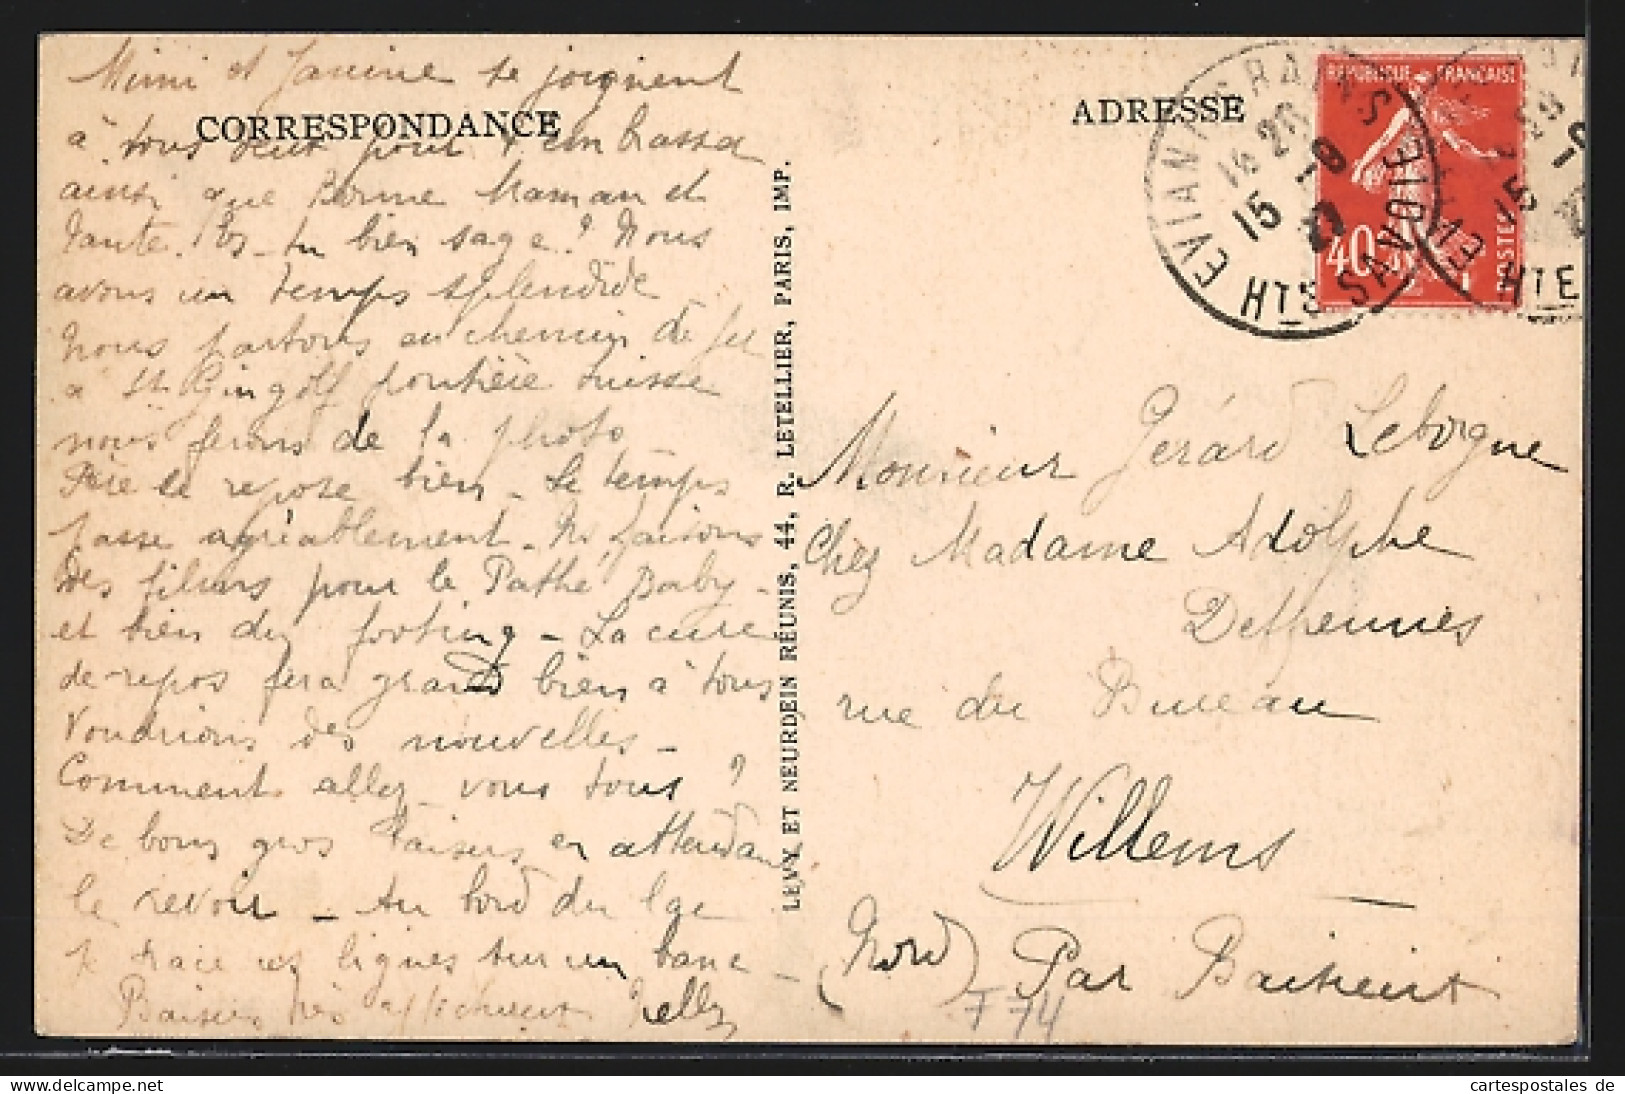 Mimi et Janine se joignent
CORRESPONDANCE
à tous deux pour t'embrasser
ainsi que Bonne Maman et
Tante. Es-tu bien sage? Nous
avons un temps splendide
Nous partons au chemin de fer
à St Gingolf frontière suisse
nous ferons de la photo
Père se repose bien - Le temps
passe agréablement. Ns faisons
des films pour le Pathé Baby -
et bien du footing - La cure
de repos fera grand bien à tous
Voudrions des nouvelles -
Comment allez vous tous?
De bons gros baisers en attendant
le revoir - Au bord du lac
je trace ces lignes sur un banc -
Baisers très affectueux
LEVY ET NEURDEIN RÉUNIS, 44, R. LETELLIER, PARIS, IMP.
ADRESSE
EVIAN LES BAINS
16 20
15 -9
27
HTE SAVOIE
REPUBLIQUE FRANÇAISE
40c
POSTES
15 -9
HTE
Monsieur Gérard Leborgne
Chez Madame Adolphe
Delpennies
rue du Bureau
Willems
(Nord) Par Baisieux
F 74
cartespostales de